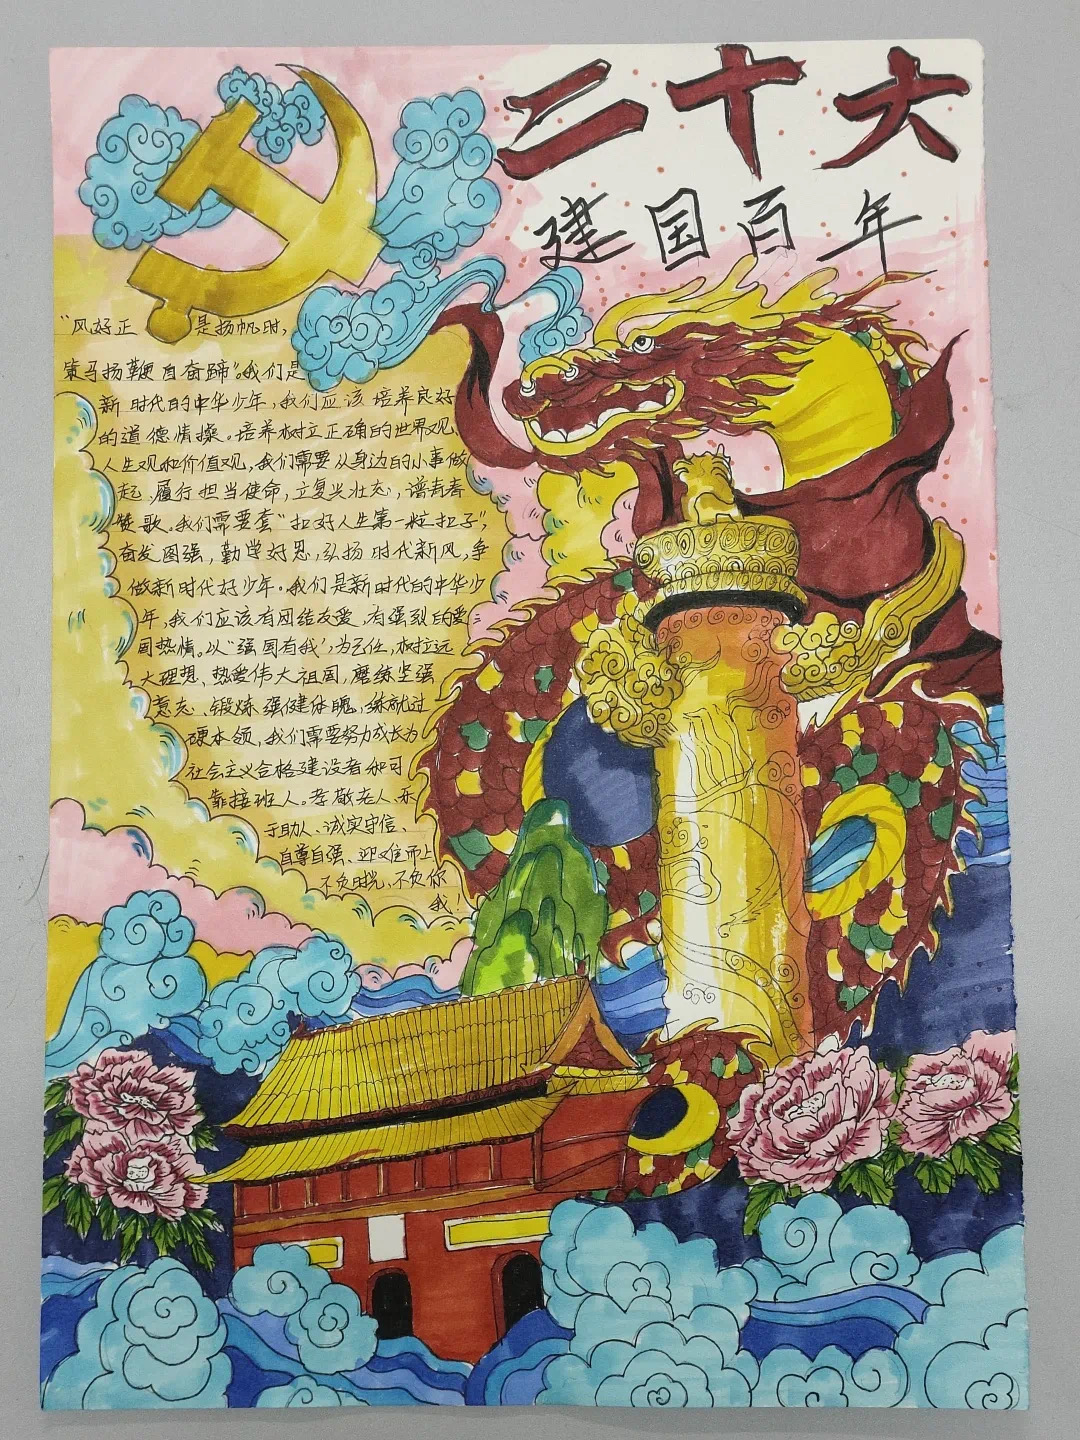 二十大
建国百年
"风好正 是扬帆时,
策马扬鞭自奋蹄"。我们是
新时代的中华少年,我们应该培养良好
的道德情操。培养树立正确的世界观、
人生观和价值观,我们需要从身边的小事做
起、履行担当使命,立复兴壮志,谱青春
赞歌。我们需要套"扣好人生第一粒扣子",
奋发图强,勤学好思,弘扬时代新风,争
做新时代好少年。我们是新时代的中华少
年,我们应该有团结友爱、有强烈的爱
国热情。以"强国有我",为己任,树立远
大理想、热爱伟大祖国,磨练坚强
意志、锻炼强健体魄,练就过
硬本领,我们需要努力成长为
社会主义合格建设者和可
靠接班人。孝敬老人、乐
于助人、诚实守信、
自尊自强、迎难而上
不负时光、不负你
我!